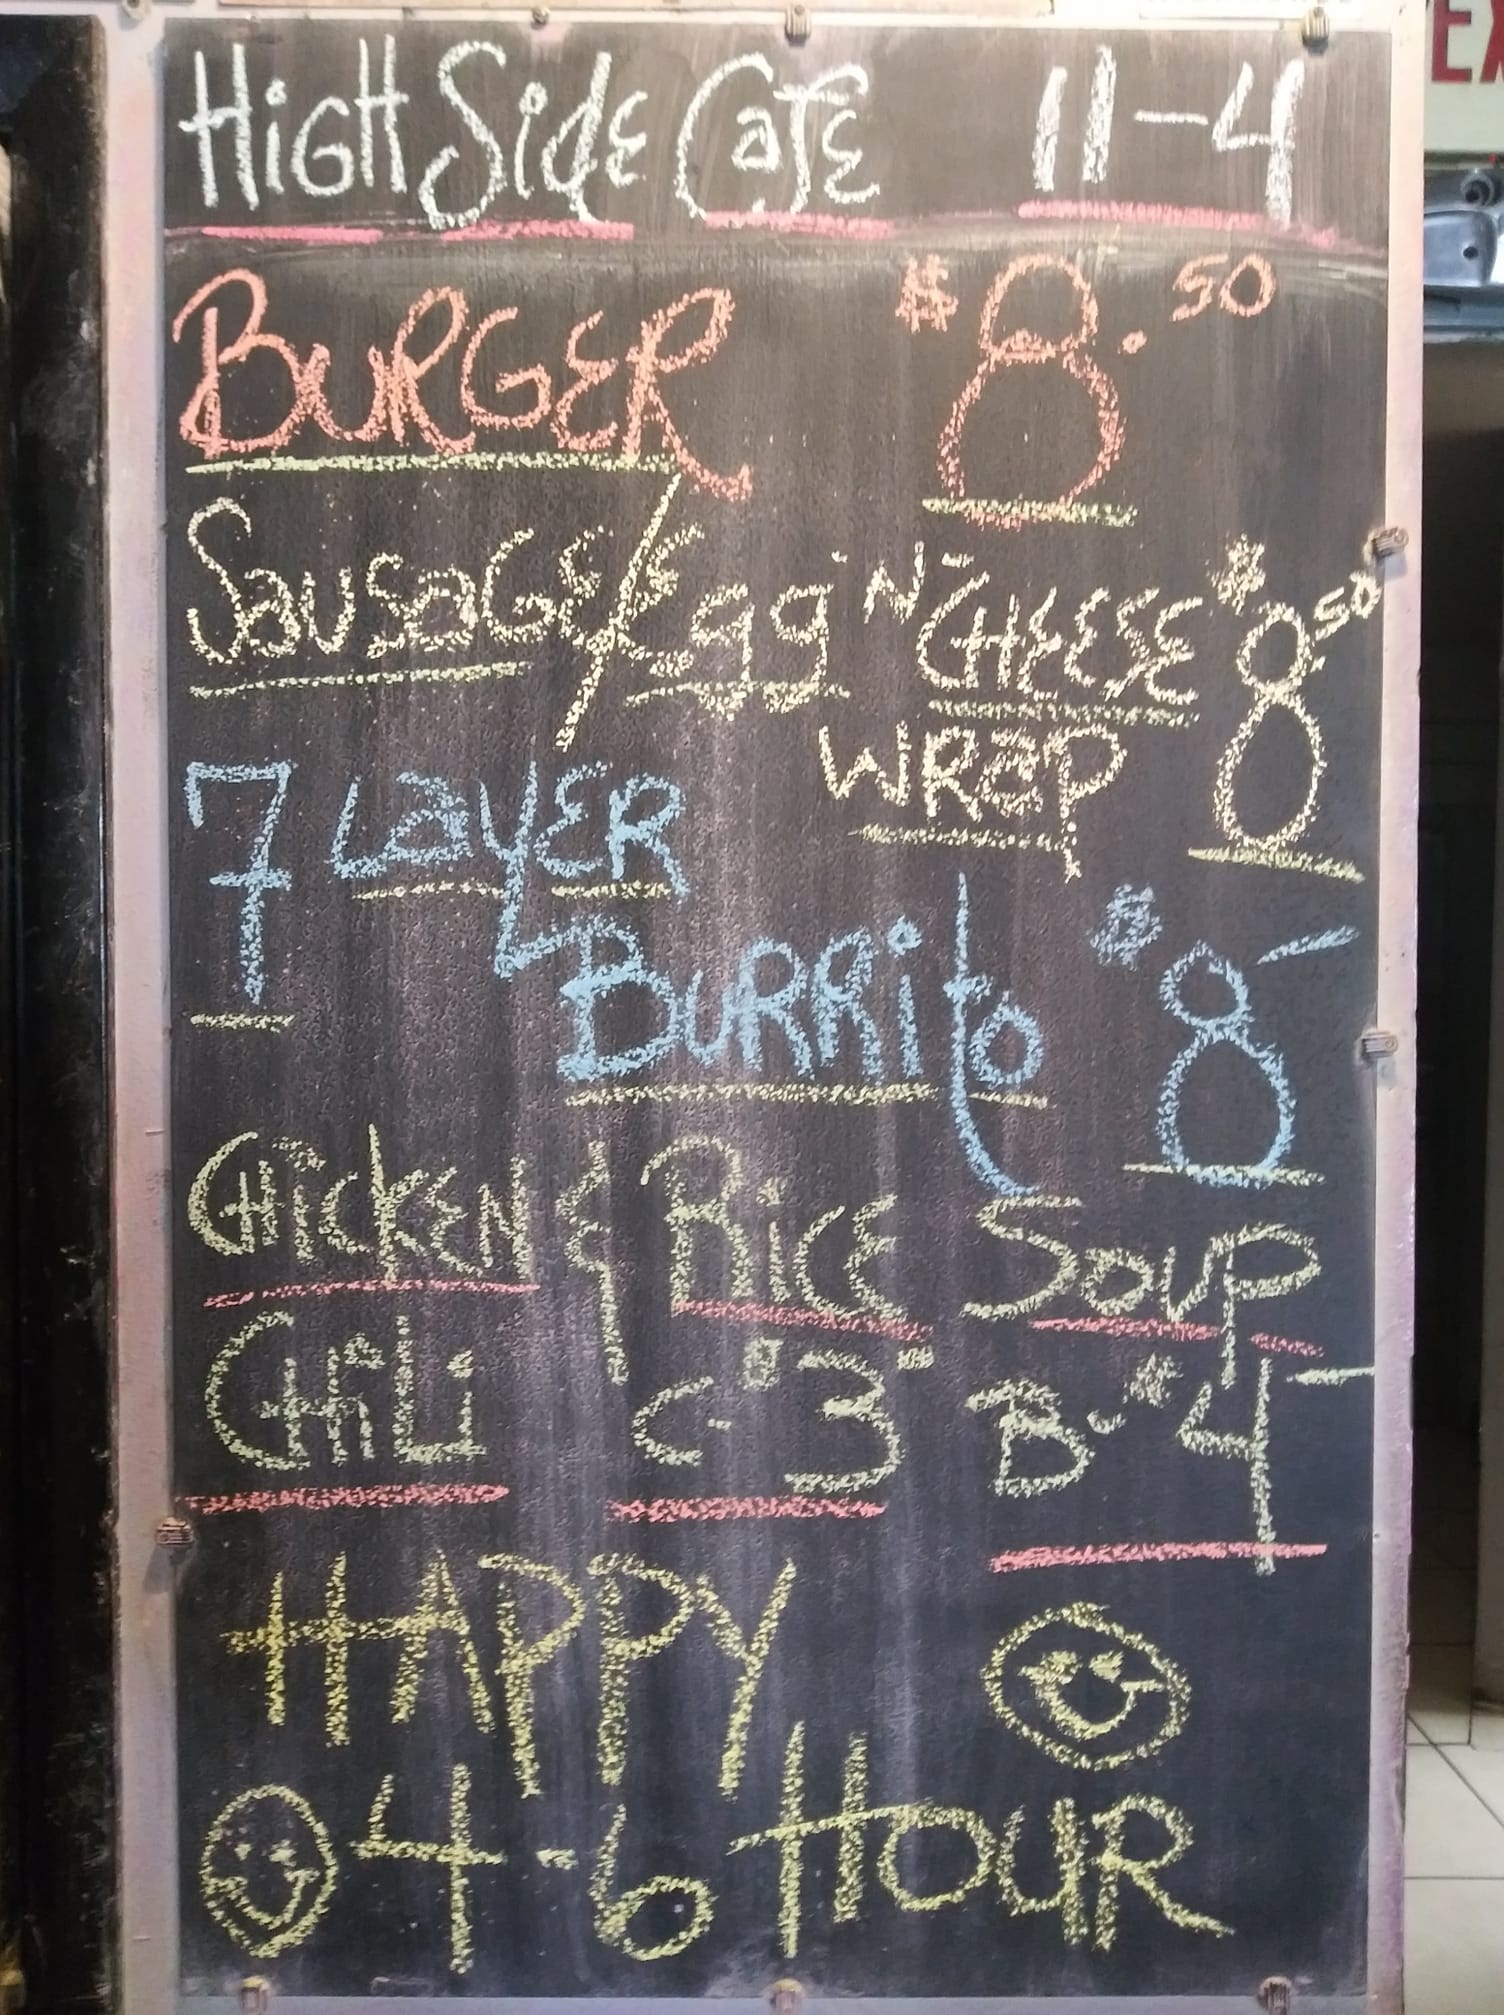 HiGH Side CaFE 11-4
BURGER $8.50
SauSaGE/Egg 'N' CHEESE $8.50
WRaP
7 LayER
BURRito $8-
CHicKEN & RicE SouP
CHiLi C-$3.00 B-$4-
HAPPY
4-6 HOUR
EX